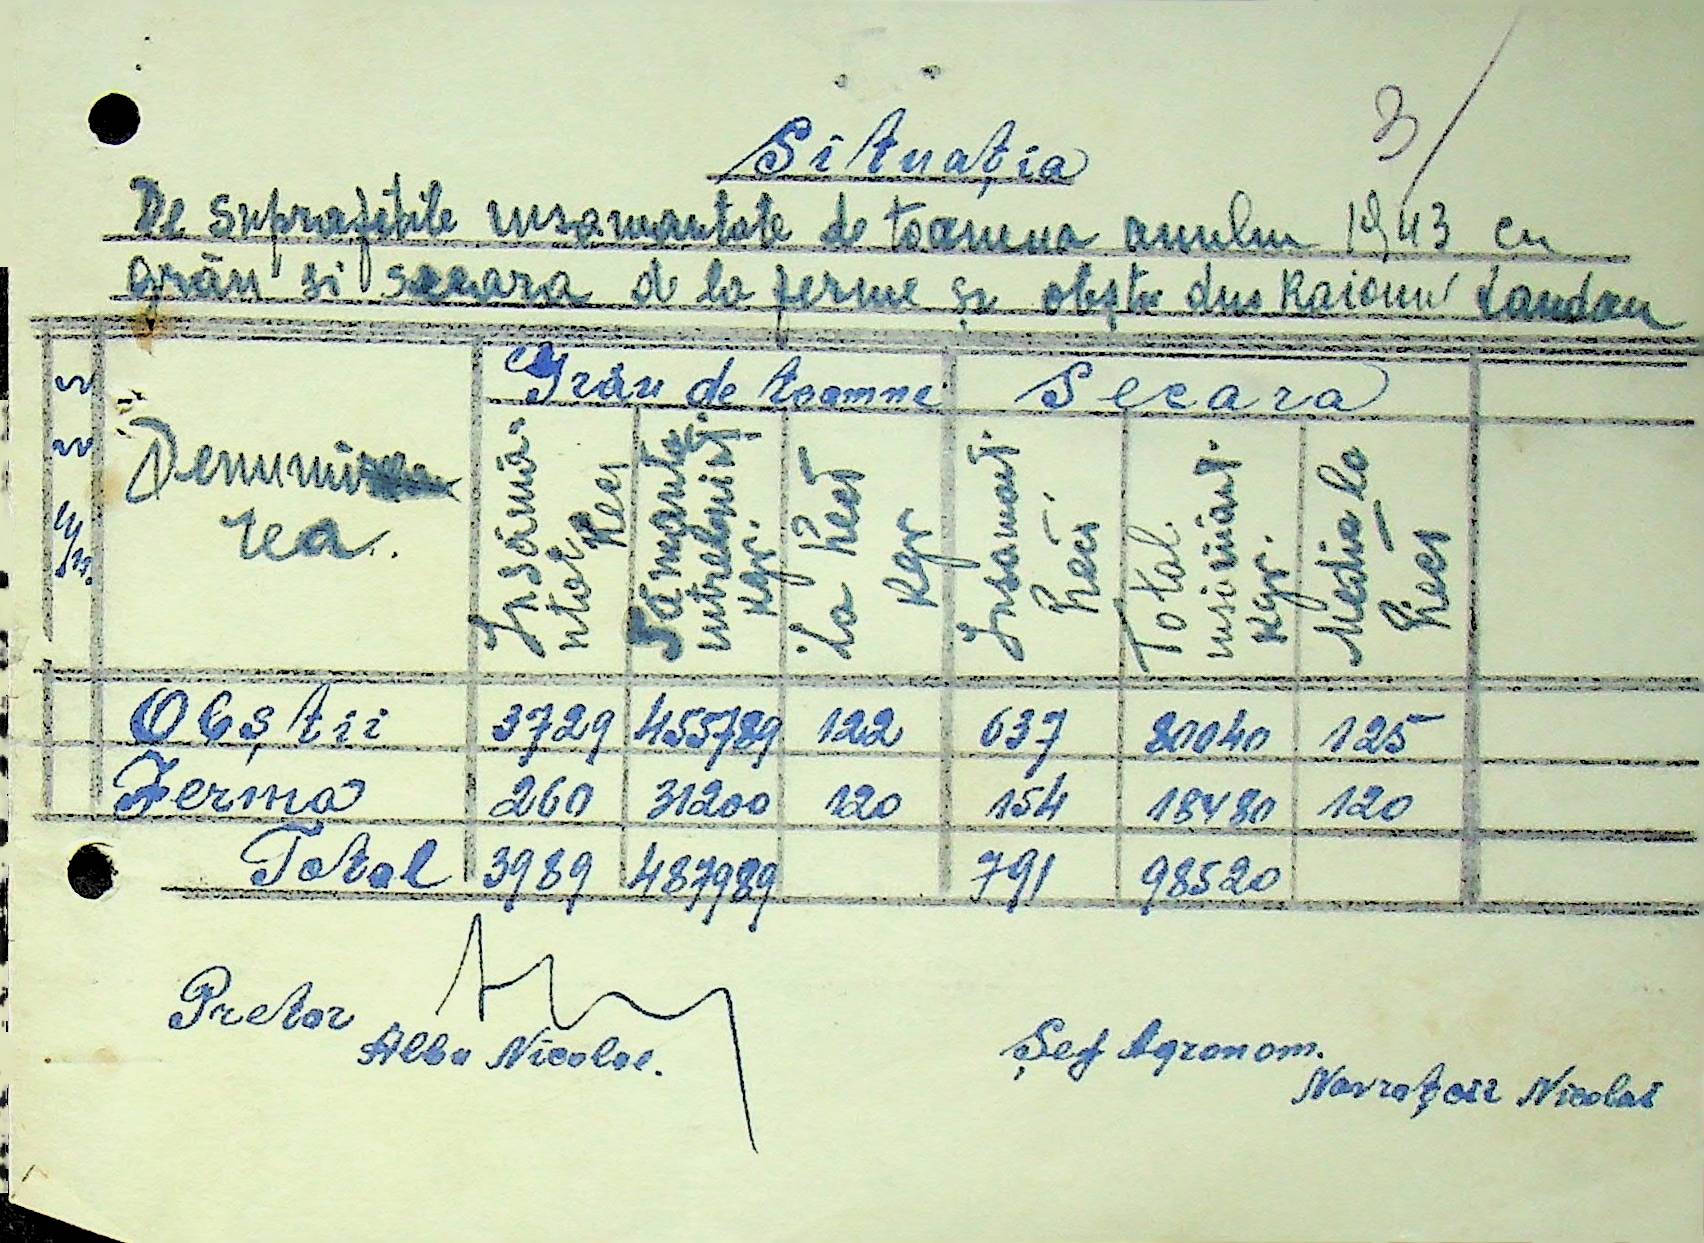 3/
Situația
De suprafețile insamantate de toamna anului 1943 cu
grân si secara de la ferme și obște din Raionu Landau
Denumi
rea.
Grâu de toamna
Secara
Insămâ-
ntat Hect
Sămânța
intrebuint.
Kgr.
La Hect
Kgr
Insamant.
Hect.
Total
Kgr.
Media la
Hect
Obștii 3729 455789 122 637 80040 125
Ferma 260 31200 120 154 18480 120
Total 3989 487989 791 98520
Pretor
Albu Nicolae.
Șef Agronom.
Nicolai